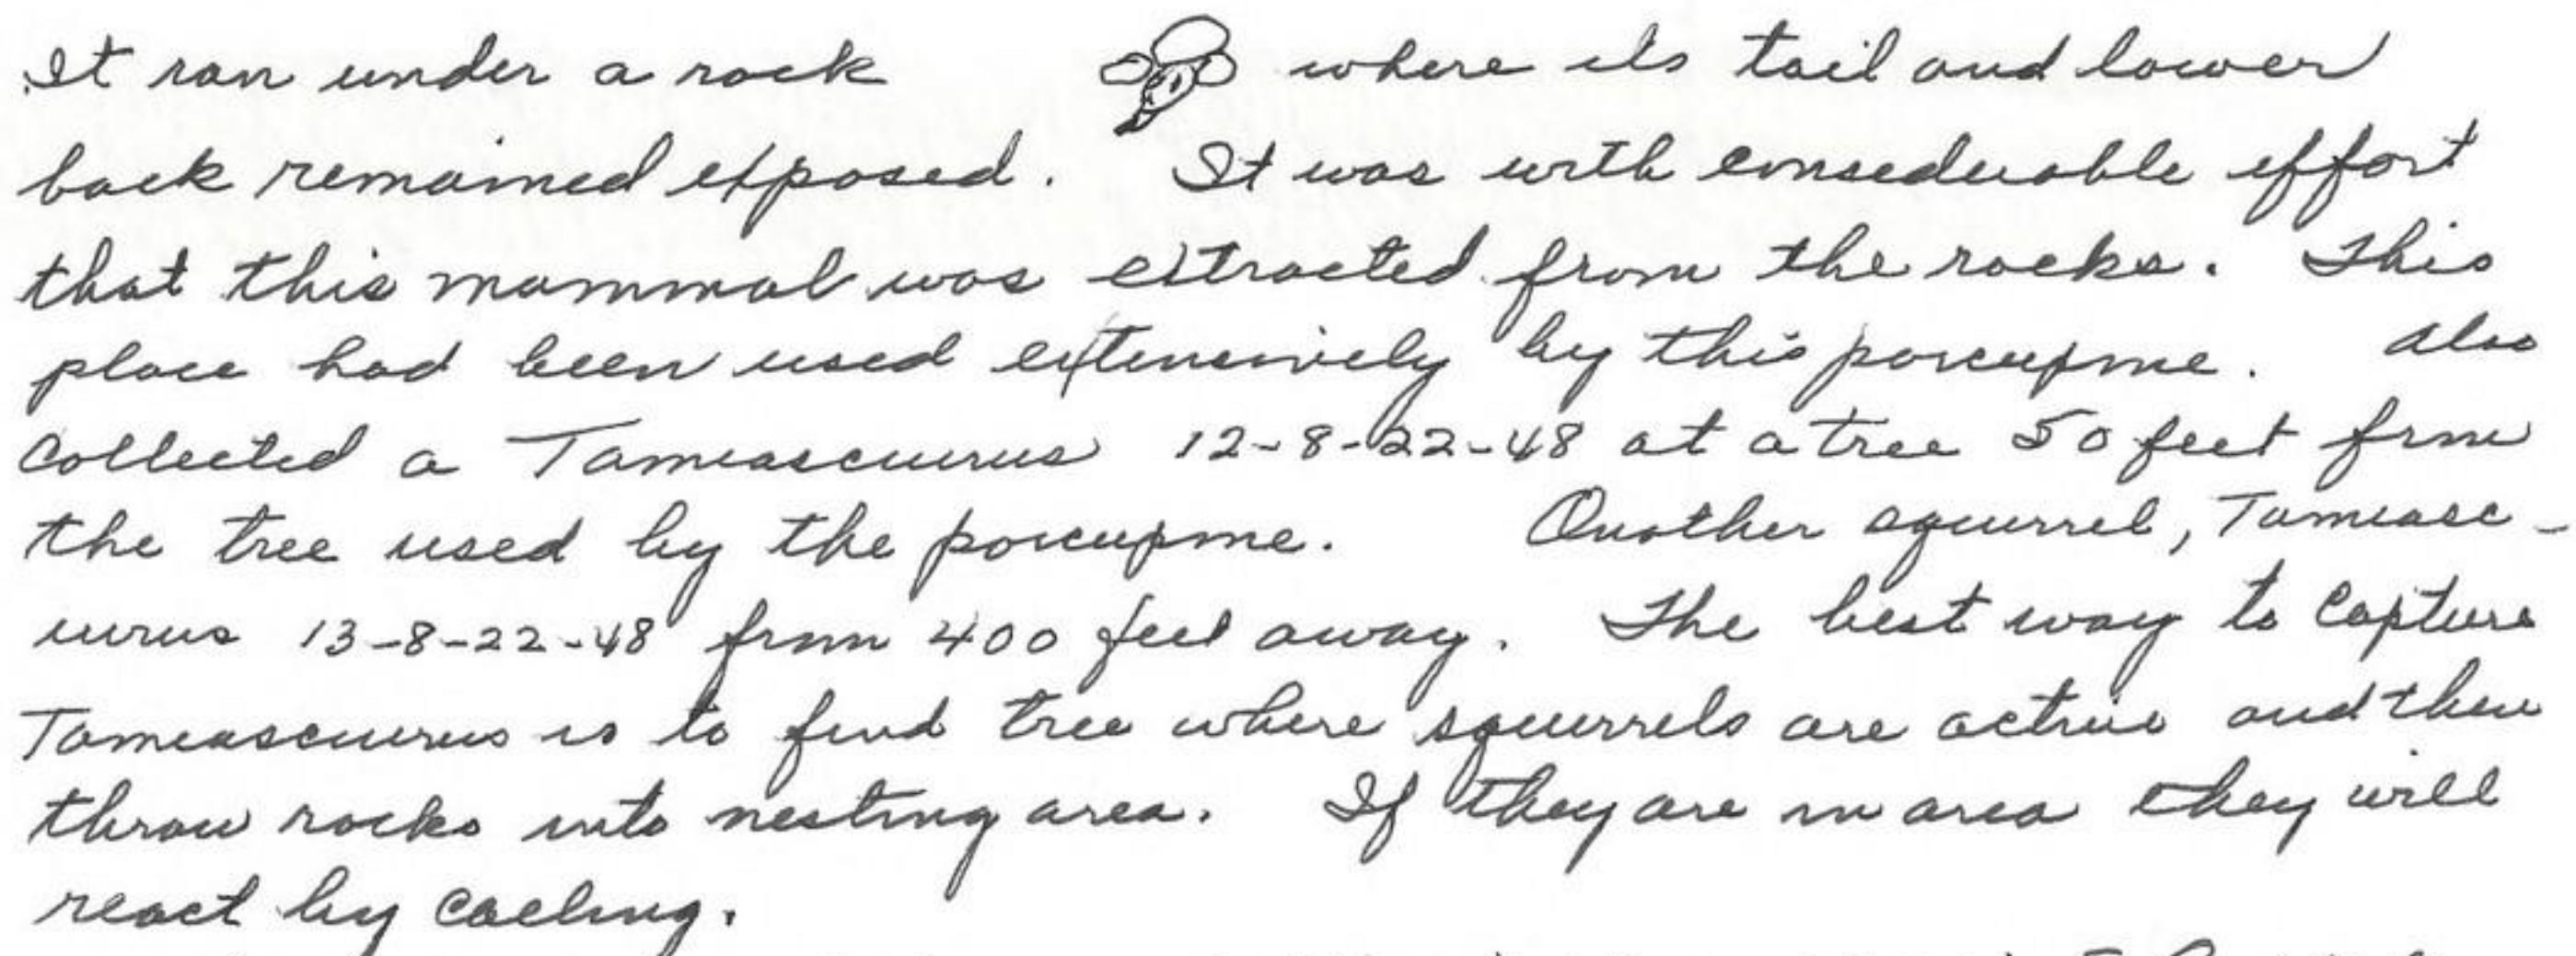 It ran under a rock where its tail and lower
back remained exposed. It was with considerable effort
that this mammal was extracted from the rocks. This
place had been used extensively by this porcupine. Also
collected a Tamiasciurus 12-8-22-48 at a tree 50 feet from
the tree used by the porcupine. Another squirrel, Tamiasc-
iurus 13-8-22-48 from 400 feet away. The best way to capture
Tamiasciurus is to find tree where squirrels are active and then
throw rocks into nesting area. If they are in area they will
react by calling.